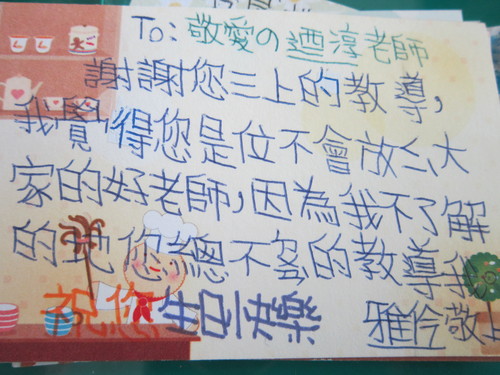 To:敬愛の迺淳老師
謝謝您三上的教導,
我覺得您是位不會放大
家的好老師,因為我不了解
的地您總不的教導我
祝您生日快樂
雅伶敬上